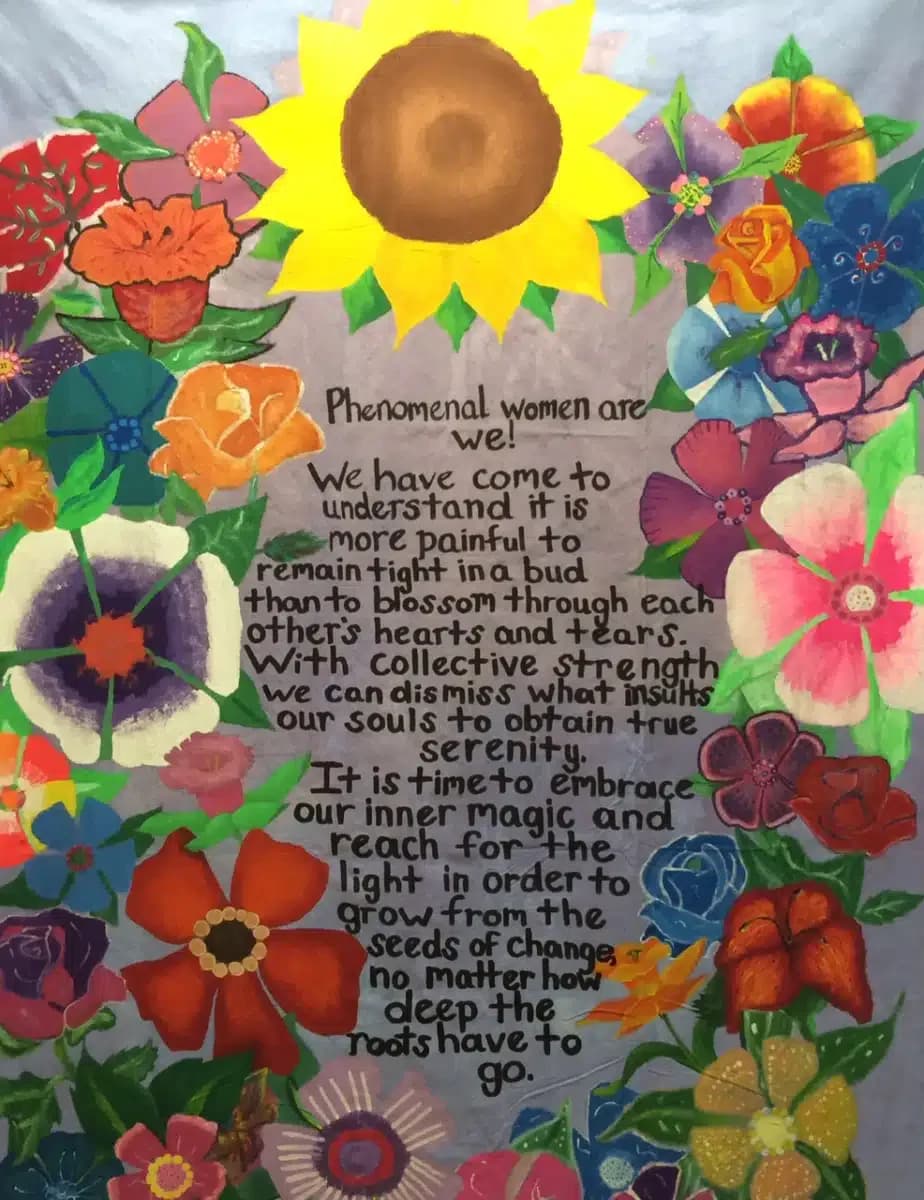 Phenomenal women are
we!
We have come to
understand it is
more painful to
remain tight in a bud
than to blossom through each
other's hearts and tears.
With collective strength
we can dismiss what insults
our souls to obtain true
serenity.
It is time to embrace
our inner magic and
reach for the
light in order to
grow from the
seeds of change,
no matter how
deep the
roots have to
go.